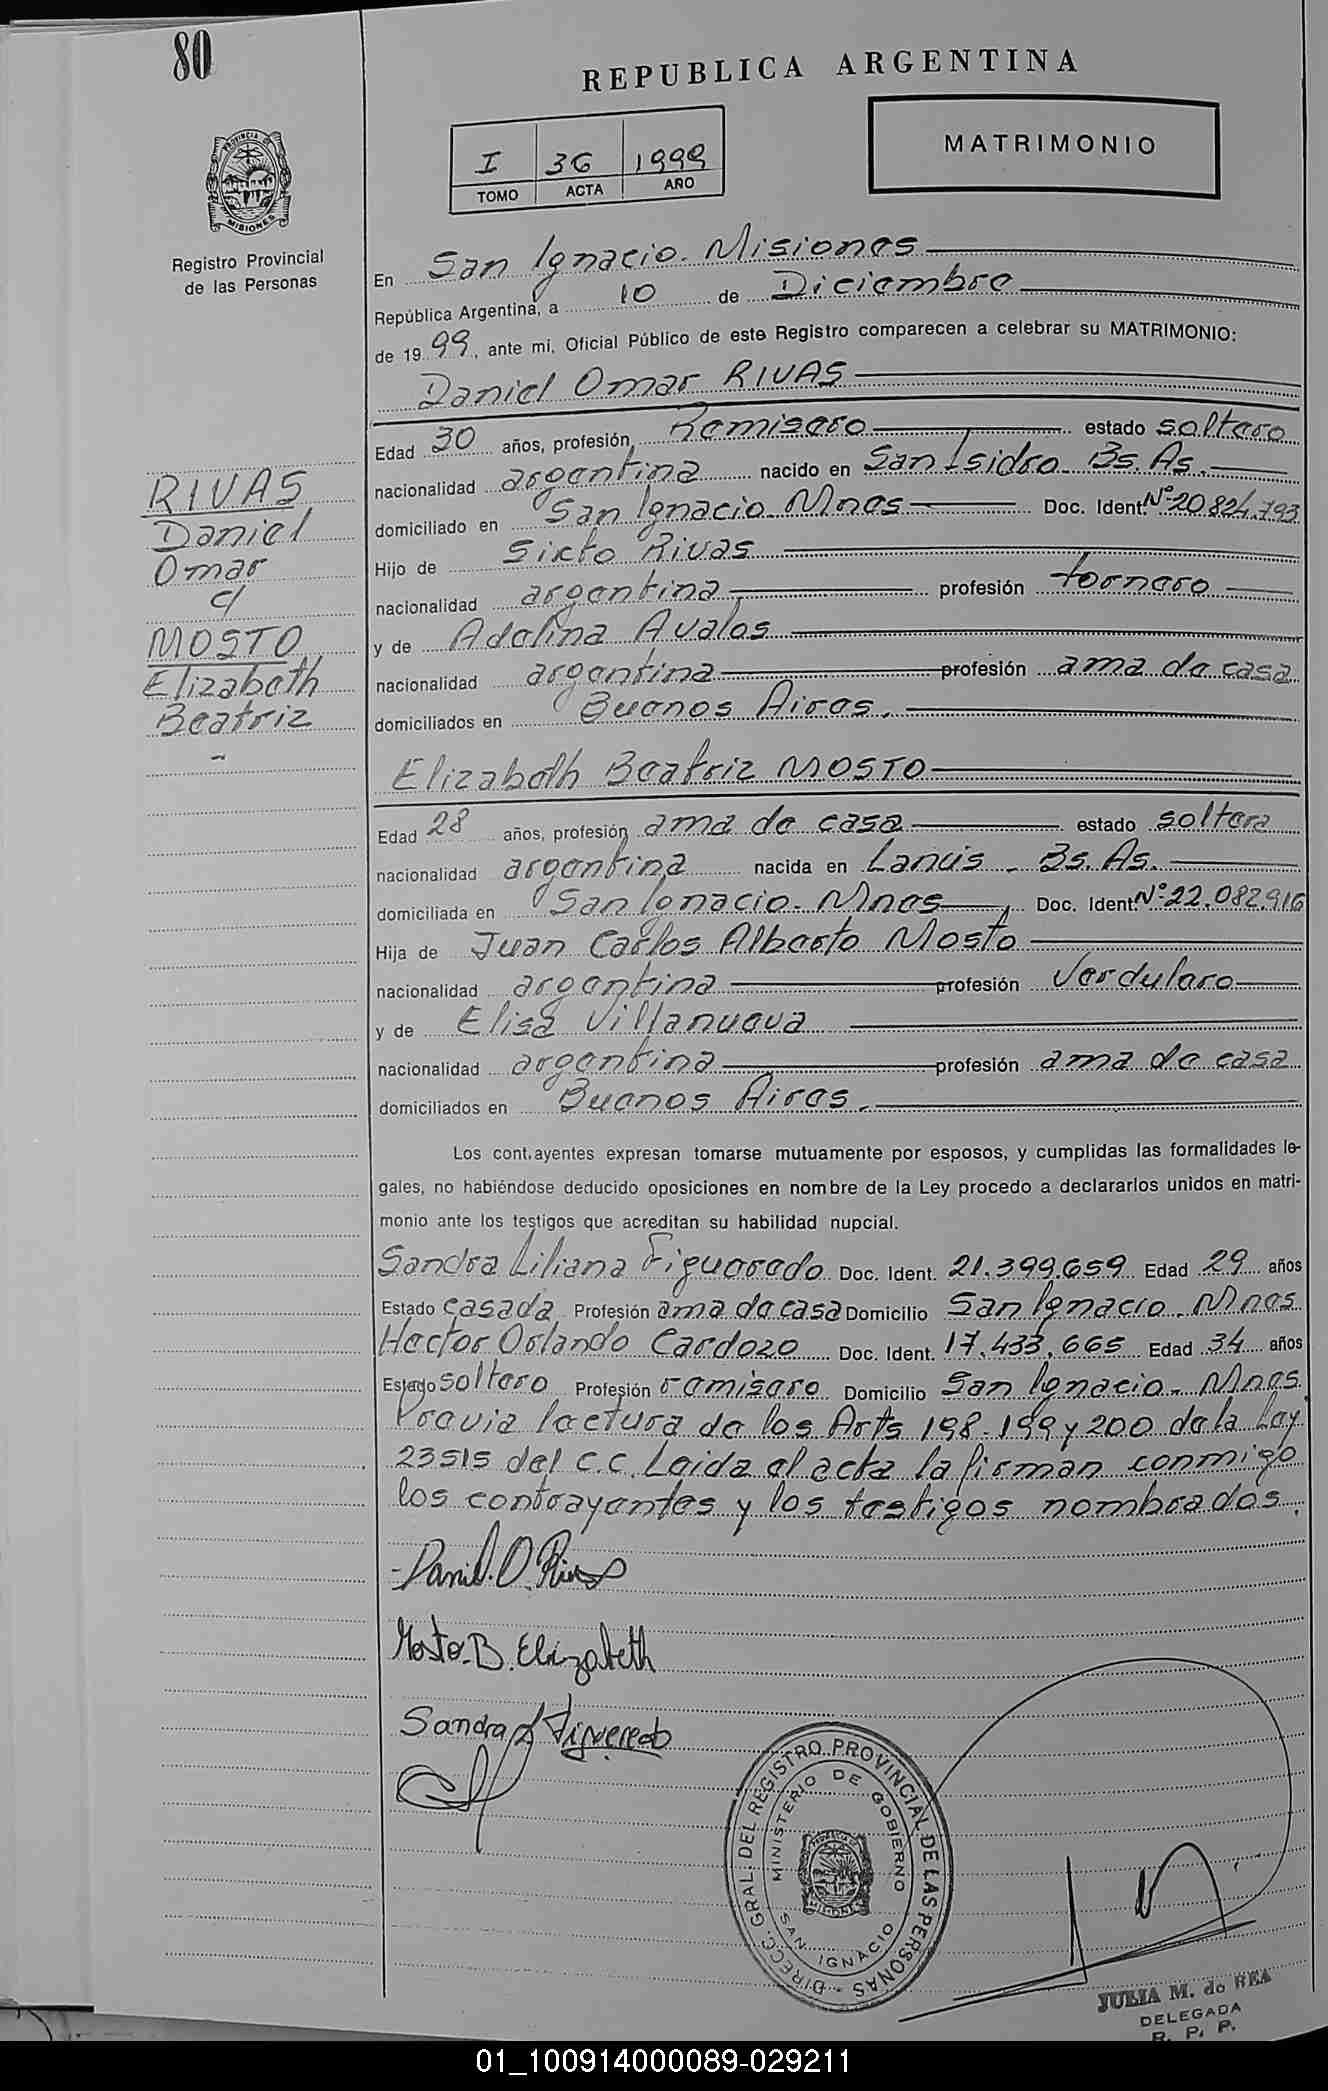 80
REPUBLICA ARGENTINA
I 36 1999
TOMO ACTA AÑO
MATRIMONIO
PROVINCIA DE
MISIONES
Registro Provincial
de las Personas
En San Ignacio. Misiones
República Argentina, a 10 de Diciembre
de 19 99, ante mi, Oficial Público de este Registro comparecen a celebrar su MATRIMONIO:
Daniel Omar RIVAS
Edad 30 años, profesión, Remisero estado soltero
nacionalidad argentina nacido en San Isidro Bs. As.
domiciliado en San Ignacio. Mnes Doc. Ident. Nº 20.824.793
Hijo de Sixto Rivas
nacionalidad argentina profesión tornero
y de Adelina Avalos
nacionalidad argentina profesión ama de casa
domiciliados en Buenos Aires.
RIVAS
Daniel
Omar
c/
MOSTO
Elizabeth
Beatriz
-
Elizabeth Beatriz MOSTO
Edad 28 años, profesión ama de casa estado soltera
nacionalidad argentina nacida en Lanús - Bs. As.
domiciliada en San Ignacio. Mnes Doc. Ident. Nº 22.082.916
Hija de Juan Carlos Alberto Mosto
nacionalidad argentina profesión Verdulero
y de Elisa Villanueva
nacionalidad argentina profesión ama de casa
domiciliados en Buenos Aires.
Los cont.ayentes expresan tomarse mutuamente por esposos, y cumplidas las formalidades le-
gales, no habiéndose deducido oposiciones en nombre de la Ley procedo a declararlos unidos en matri-
monio ante los testigos que acreditan su habilidad nupcial.
Sandra Liliana Figueredo Doc. Ident. 21.399.659 Edad 29 años
Estado casada Profesión ama de casa Domicilio San Ignacio. Mnes
Hector Orlando Cardozo Doc. Ident. 17.433.665 Edad 34 años
Estado soltero Profesión remisero Domicilio San Ignacio - Mnes.
Previa lectura de los Arts 198-199 y 200 de la Ley
23515 del C.C. Leida el acta la firman conmigo
los contrayentes y los testigos nombrados.
Daniel. O. Rivas
Mosto. B. Elizabeth
Sandra L Figueredo
DIRECC. GRAL. DEL REGISTRO PROVINCIAL DE LAS PERSONAS
MINISTERIO DE GOBIERNO
SAN IGNACIO
MISIONES
JULIA M. de REA
DELEGADA
R. P. P.
01_100914000089-029211